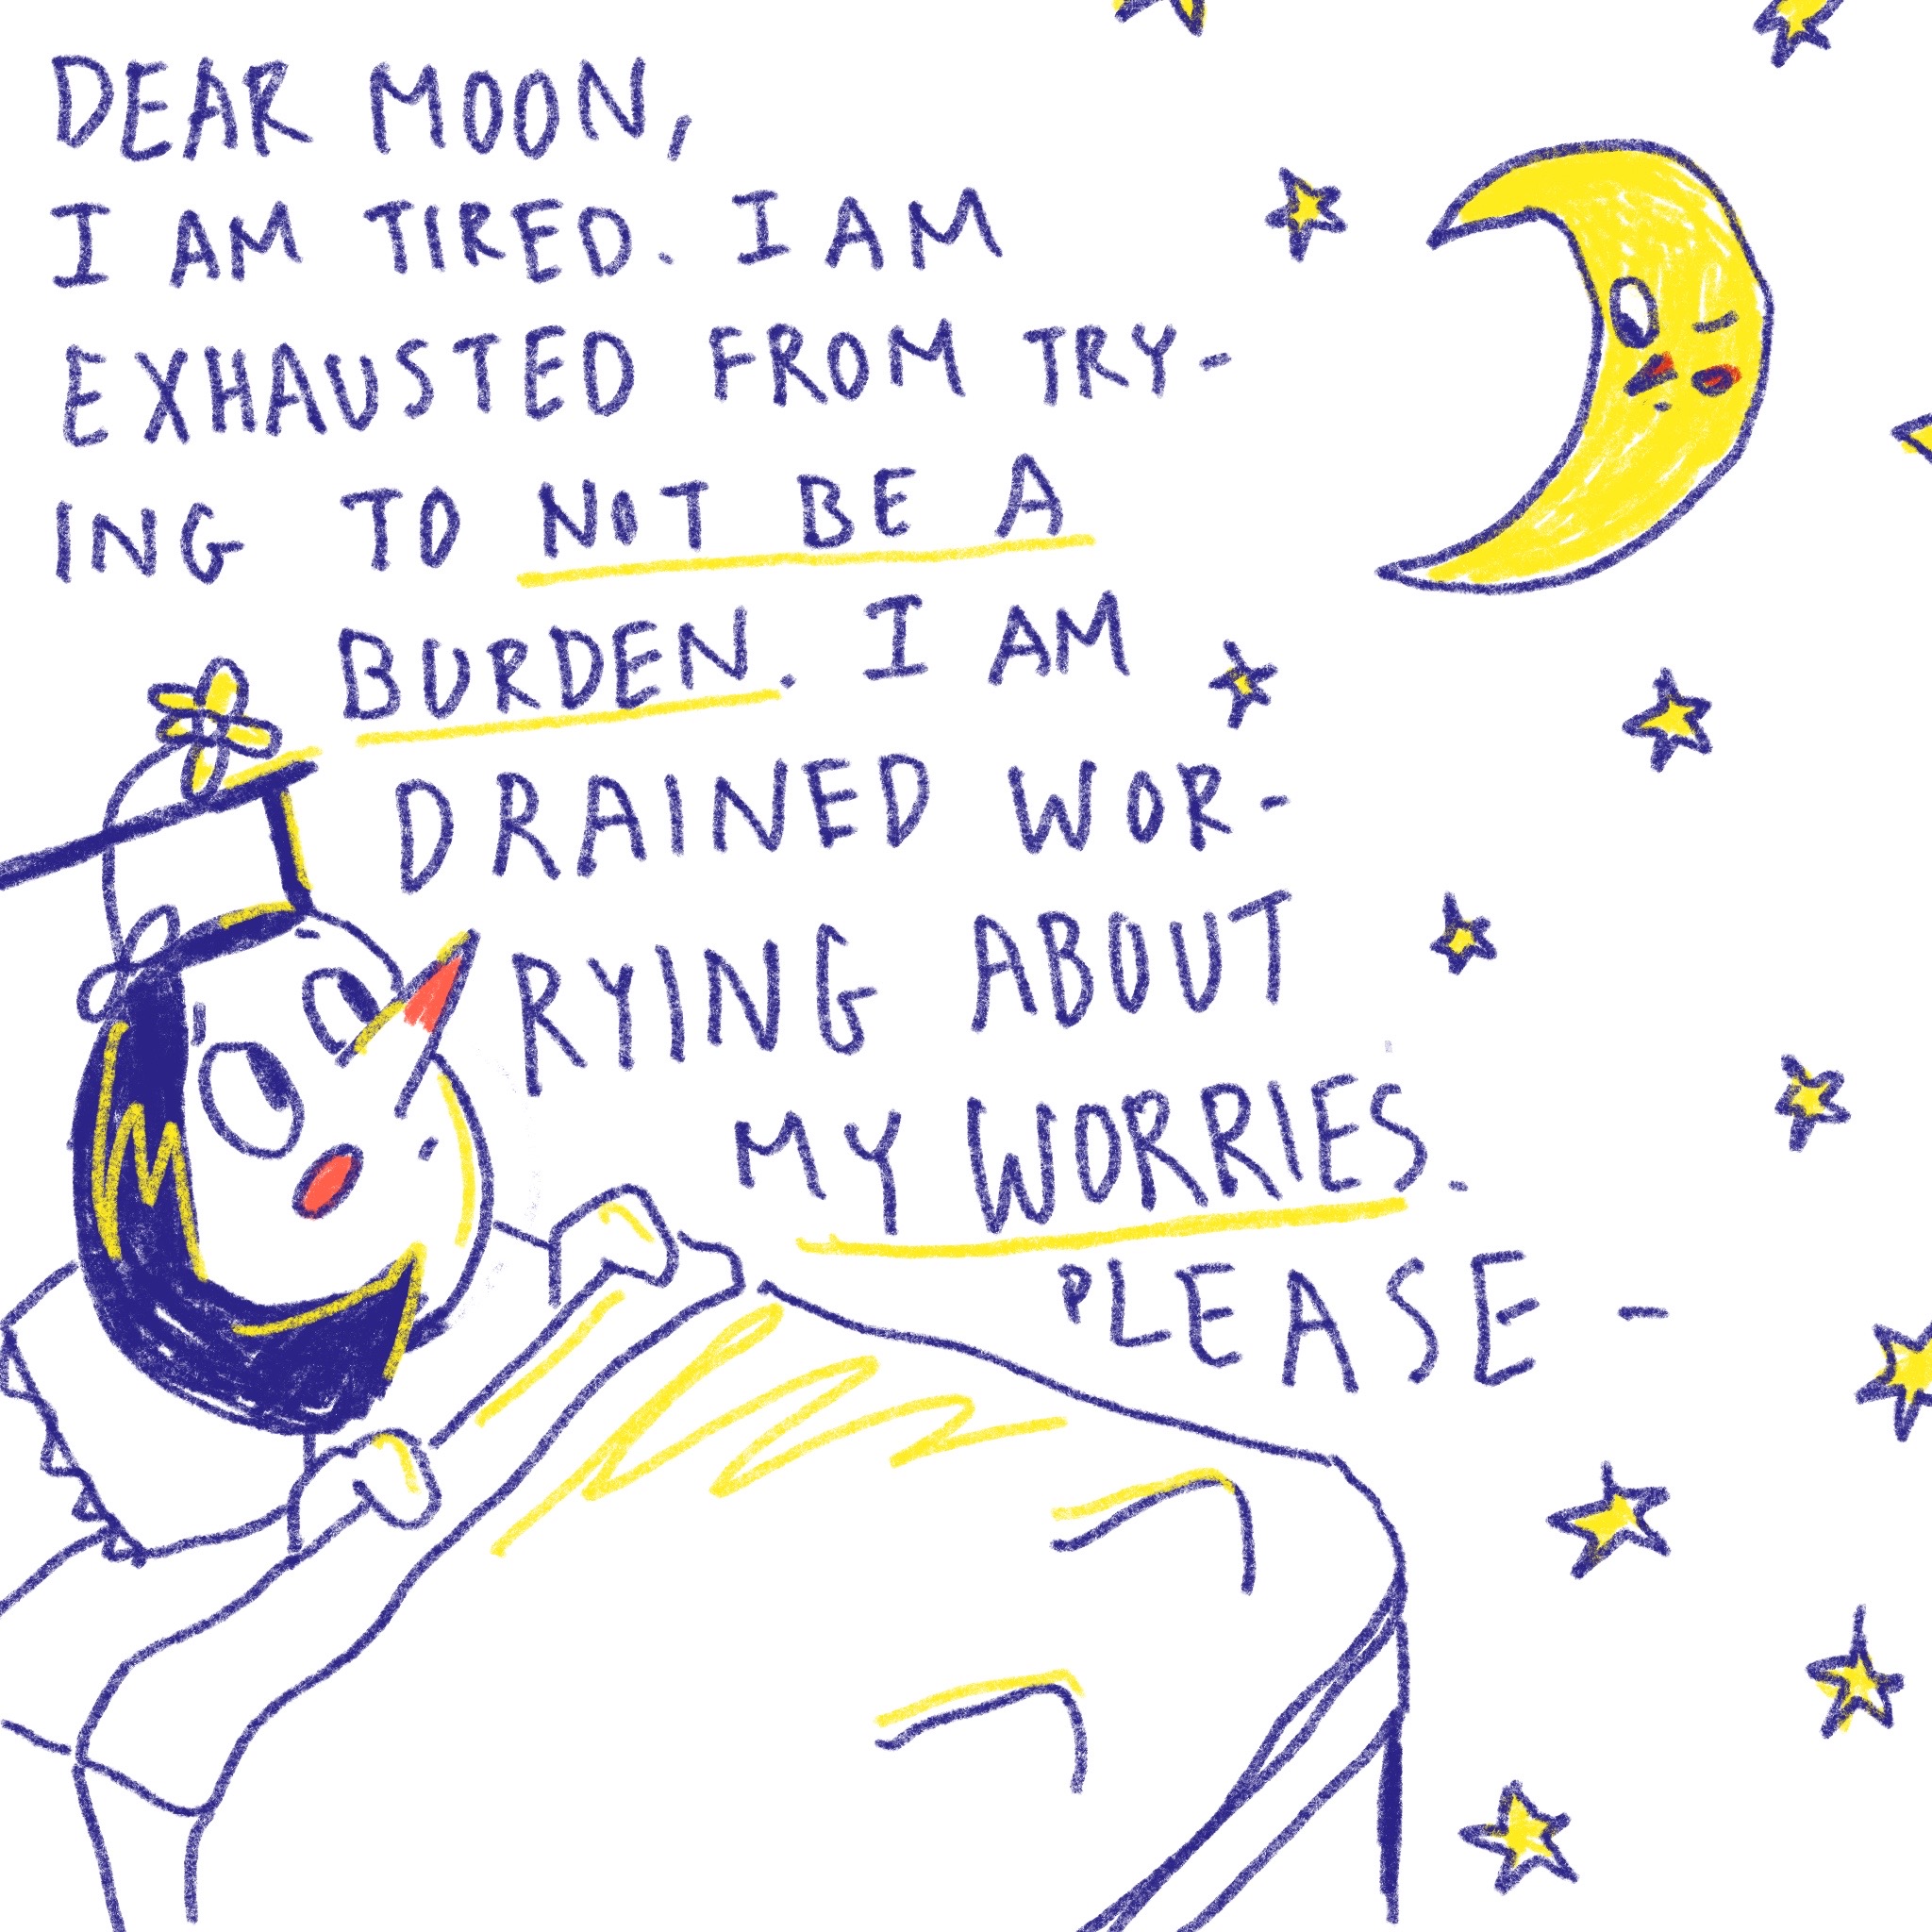 DEAR MOON,
I AM TIRED. I AM
EXHAUSTED FROM TRY-
ING TO NOT BE A
BURDEN. I AM
DRAINED WOR-
RYING ABOUT
MY WORRIES.
PLEASE -